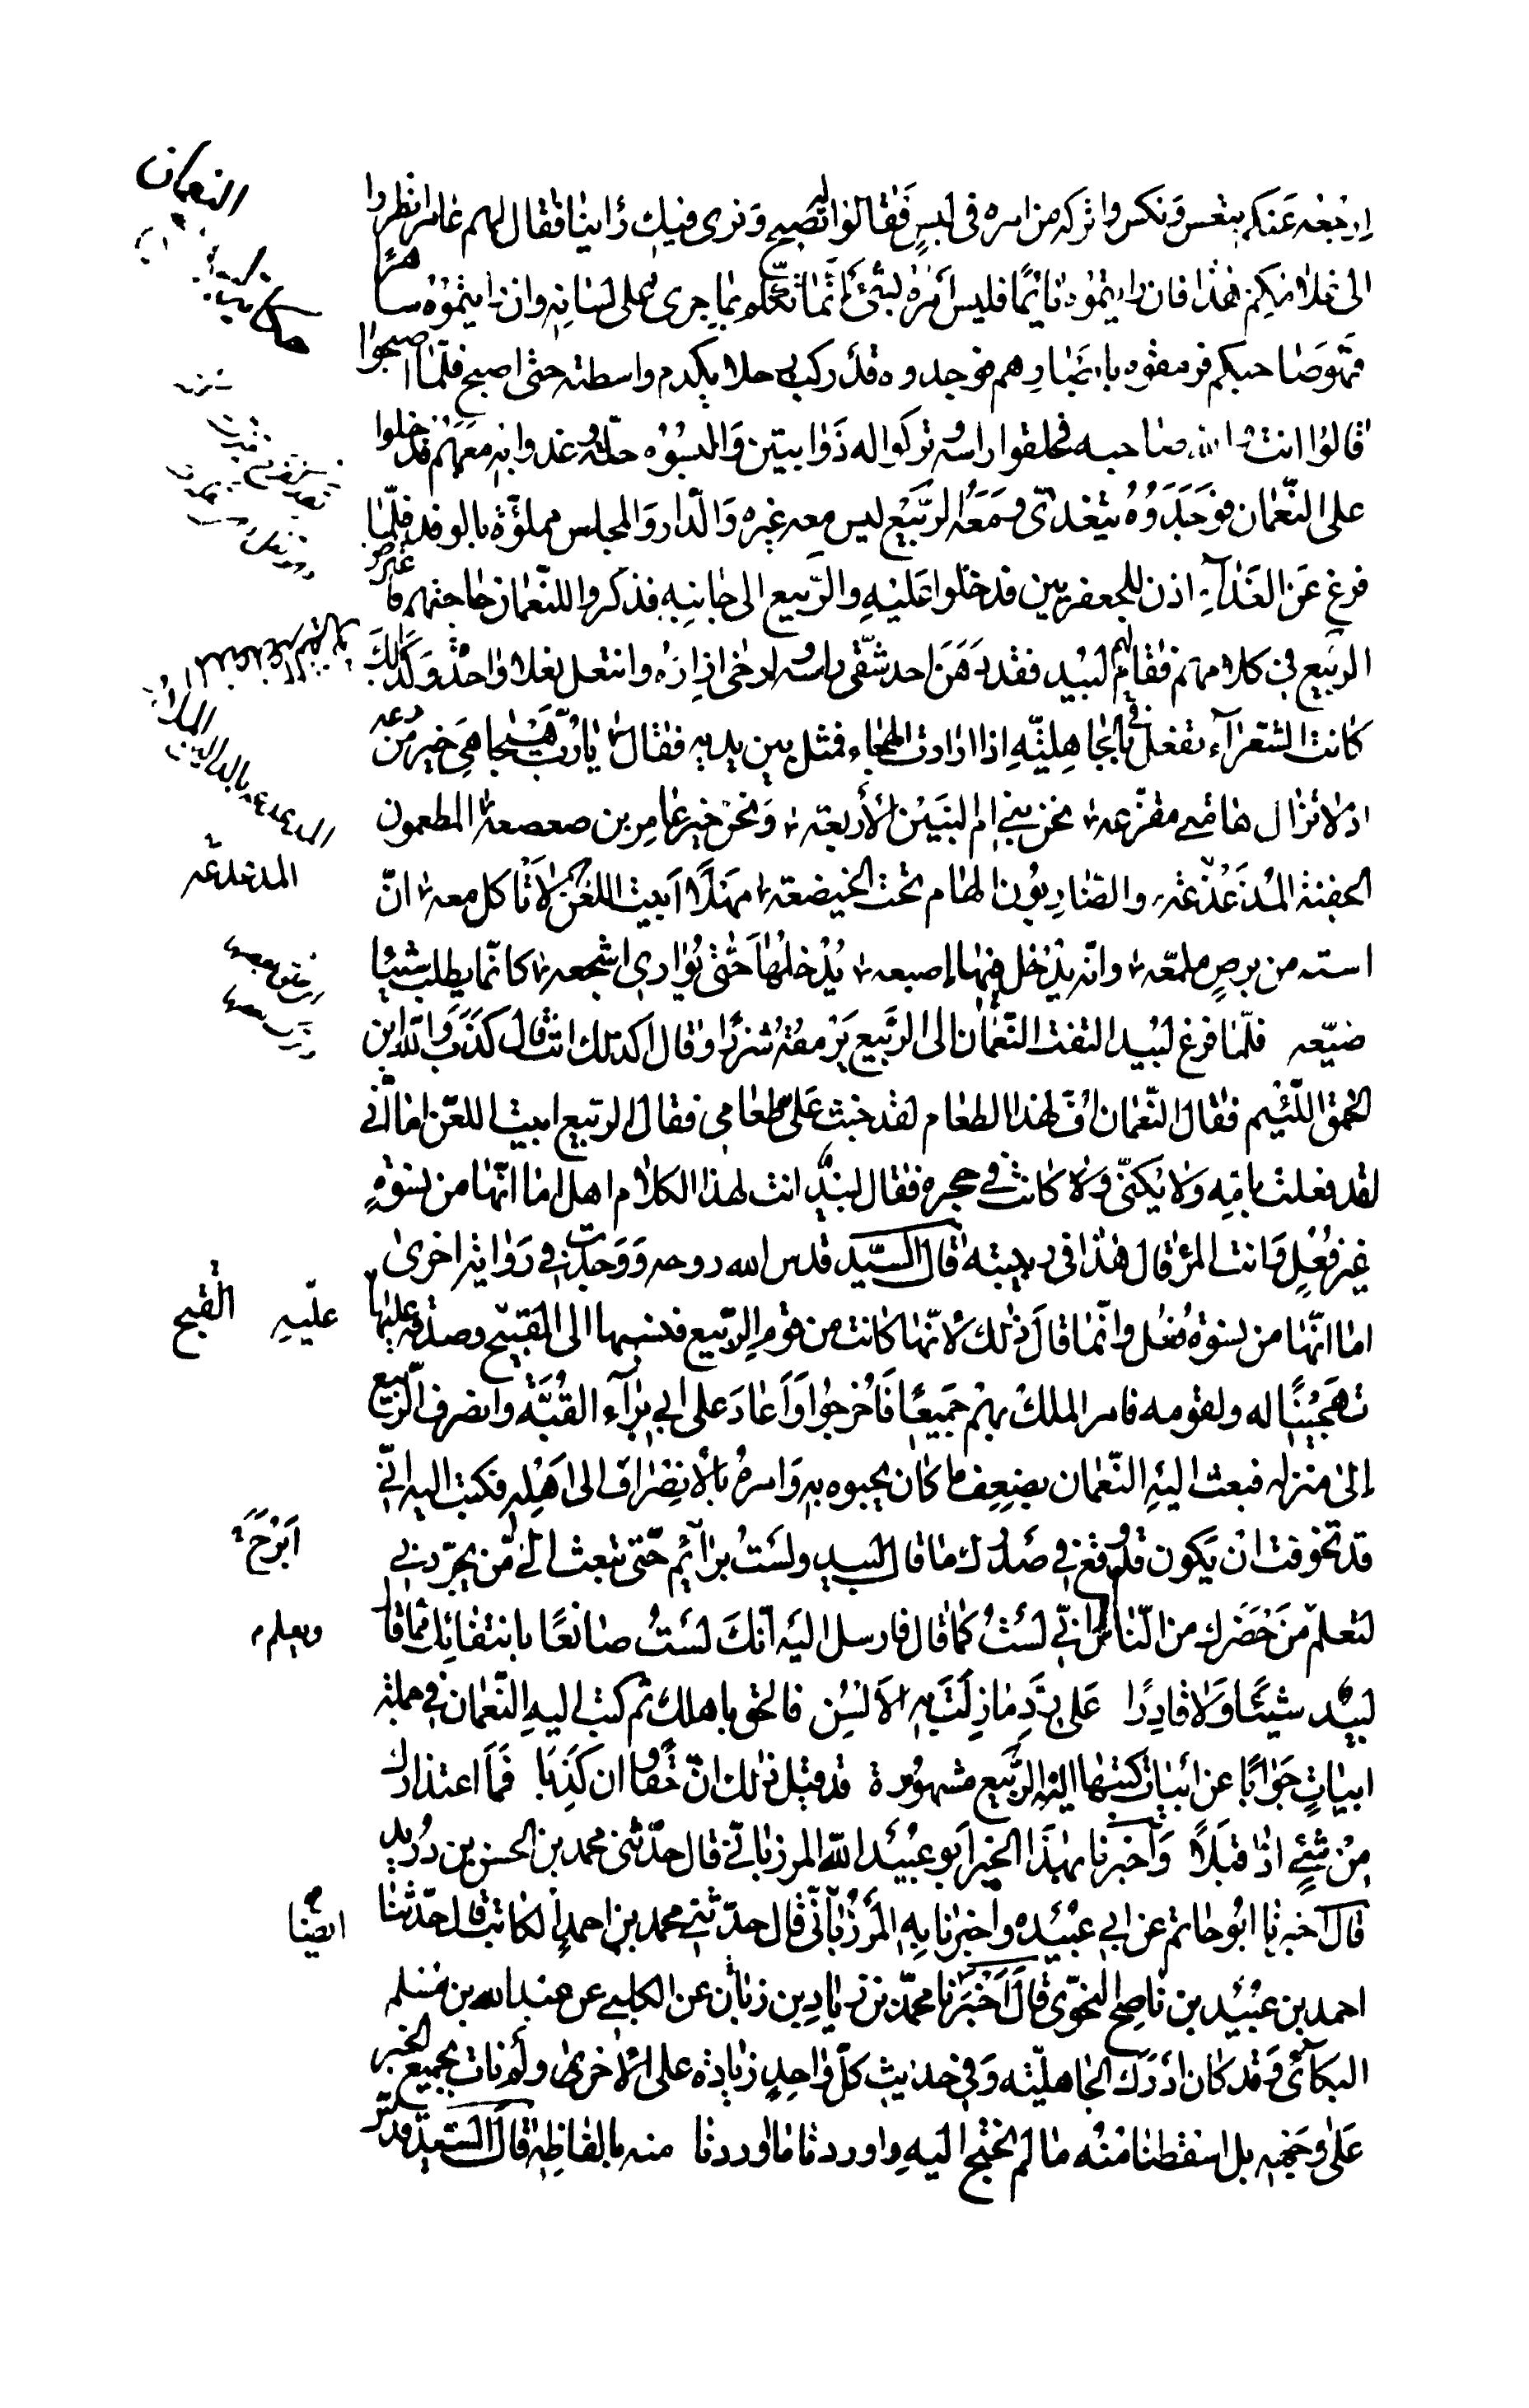 ارجعه عنكم بتعس ونكس واتركه من امره في لبس فقالوا له نصبح ونرى فيك رأينا فقال لهم عامر انظروا
الى غلامكم هذا فان رايتموه نائما فليس أمره بشئ انما تكلم بما جرى على لسانه وان رايتموه ساهرا
فهو صاحبكم فرمقوه بابصارهم فوجدوه قد ركب رحلا يكدم واسطته حتى اصبح فلما اصبحوا
قالوا انت والله صاحبه فحلقوا راسه وتركوا له ذوابتين والبسوه حلة وغدوا به معهم فدخلوا
على النعمان فوجدوه يتغدى ومعه الربيع ليس معه غيره والدار والمجالس مملوة بالوفد فلما
فرغ عن الغداء اذن للجعفريين فدخلوا عليه والربيع الى جانبه فذكروا للنعمان حاجتهم فاعترض
الربيع في كلامهم فقام لبيد فقد دهن احد شقى راسه وارخى ازاره وانتعل نعلا واحدة وكذلك
كانت الشعراء تفعل في الجاهلية اذا ارادت الهجاء فمثل بين يديه فقال يا رب هيجا هي خير من دعه
اذ لا تزال هامتي مقزعه نحن بني ام البنين الاربعة ونحن خير عامر بن صعصعة المطعمون
الجفنة المذعذعة والضاربون الهام تحت الخيضعة مهلا ابيت اللعن لا تأكل معه ان
استه من برص ملمعه وانه يدخل فيها اصبعه يدخلها حتى يواري اشجعه كانما يطلب شيئا
ضيعه فلما فرغ لبيد التفت النعمان الى الربيع يرمقه شزرا وقال اكذلك انت قال كذب والله ابن
الحمق اللئيم فقال النعمان اف لهذا الطعام لقد خبث علي طعامي فقال الربيع ابيت اللعن اما اني
لقد فعلت بامه ولا يكنى ولا كانت في حجره فقال لبيد انت لهذا الكلام اهل اما انها من نسوة
غير فعل وانت المرء قال هذا في يتيمته قال السيد قدس الله روحه ووجدت في رواية اخرى
اما انها من نسوة فعل وانما قال ذلك لانها كانت من قوم الربيع فنسبها الى القبيح وصدقه عليها
تهجينا له ولقومه فامر الملك بهم جميعا فاخرجوا واعاد على ابي براء القبة وانصرف الربيع
الى منزله فبعث اليه النعمان بضعف ما كان يحبوه به وامره بالانصراف الى اهله فكتب اليه اني
قد تخوفت ان يكون قد وقع في صدرك ما قال لبيد ولست برائم حتى تبعث الي من يجردني
لتعلم من حضرك من الناس اني لست كما قال فارسل اليه انك لست صانعا بانتفائك مما قال
لبيد شيئا ولا قادرا على رد ما زلت به الالسن فالحق باهلك ثم كتب اليه النعمان في جملة
ابيات جوابا عن ابيات كتبها اليه الربيع مشهورة قد قيل ذلك ان حقا وان كذبا فما اعتذارك
من شئ اذا قيلا واخبرنا بهذا الخبر ابو عبيد الله المرزباني قال حدثني محمد بن الحسن بن دريد
قال اخبرنا ابو حاتم عن ابي عبيده واخبرنا به المرزباني قال حدثني محمد بن احمد الكاتب قال حدثنا
احمد بن عبيد بن ناصح النحوي قال اخبرنا محمد بن زياد بن زبان عن الكلبي عن عبد الله بن مسلم
البكائي وقد كان ادرك الجاهلية وفي حديث كل واحد زيادة على الاخرى ولم نات بجميع الخبر
على وجهه بل اسقطنا منه ما لم نحتج اليه واوردنا ما اوردنا منه بالفاظه قال السيد قدس
النعمان
المدعدعه بالدالين
المذعذعه
عليه القبيح
ابرح
ويعلم
ايضا